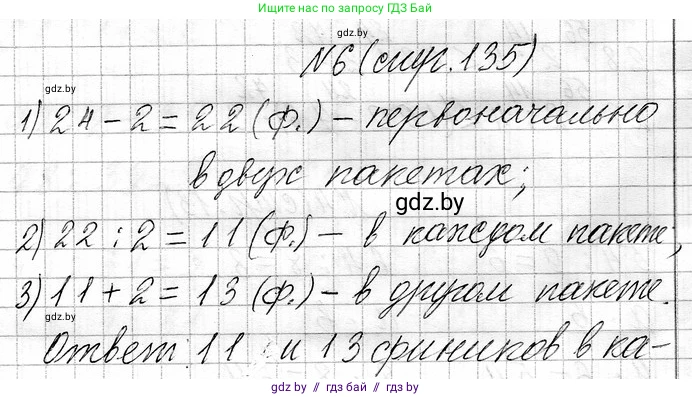 Ищите нас по запросу ГДЗ Бай
gdz.by
№6 (стр. 135)
gdz.by
1) 24 - 2 = 22 (ф.) - первоначально
в двух пакетах;
gdz.by
2) 22 : 2 = 11 (ф.) - в каждом пакете;
3) 11 + 2 = 13 (ф.) - в другом пакете.
Ответ: 11 и 13 фиников в ка-
gdz.by // гдз бай // gdz.by